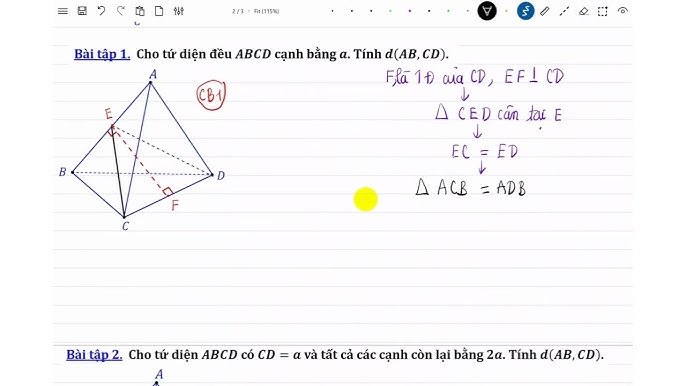 2 / 3
Fit (115%)
Bài tập 1. Cho tứ diện đều ABCD cạnh bằng a. Tính d(AB, CD).
F là TĐ của CD, EF ⊥ CD
A
CB1
↓
Δ CED cân tại E
E
↓
EC = ED
↓
B
D
Δ ACB = ADB
F
C
Bài tập 2. Cho tứ diện ABCD có CD = a và tất cả các cạnh còn lại bằng 2a. Tính d(AB, CD).
A